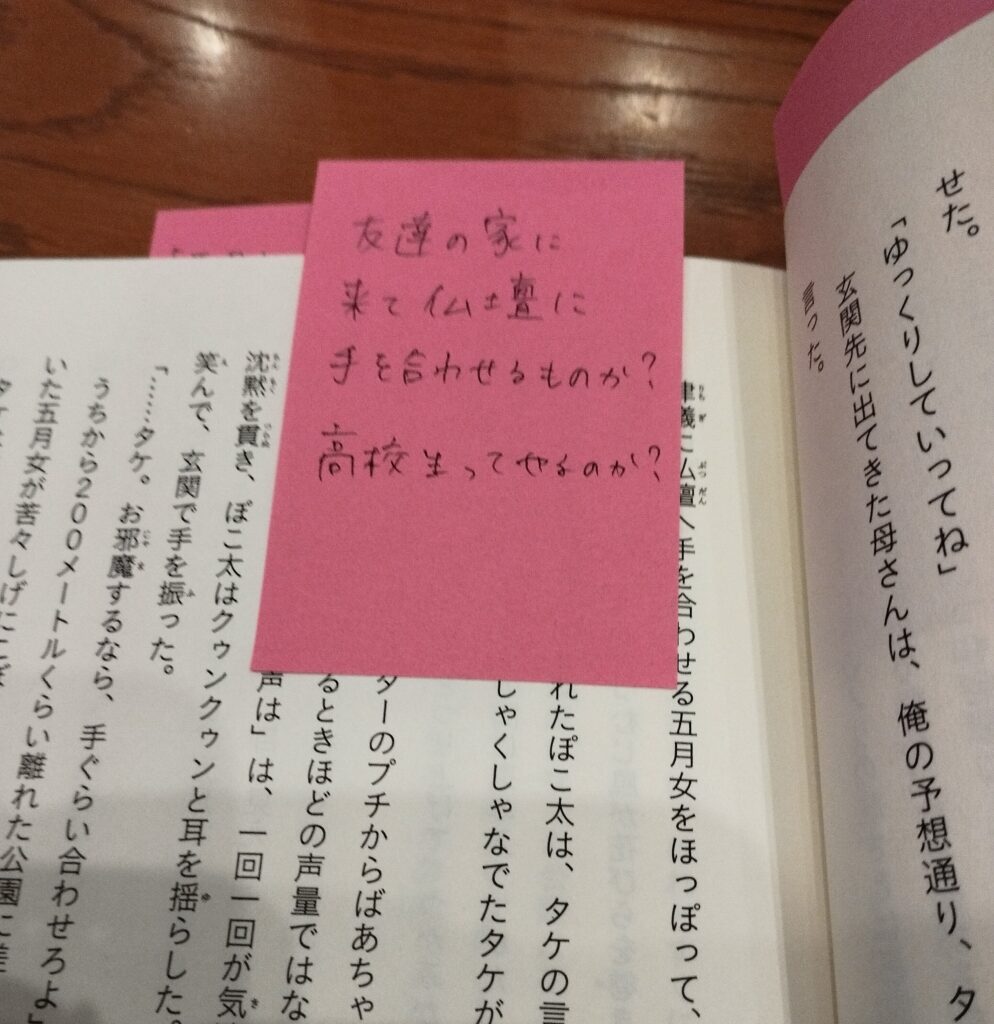 せた。
「ゆっくりしていってね」
玄関先に出てきた母さんは、俺の予想通り、タ
言った。
友達の家に
来て仏壇に
手を合わせるものか?
高校生ってやるのか?
律義に仏壇へ手を合わせる五月女をほっぽって、
れたぽこ太は、タケの言
しゃくしゃなでたタケが
ターのプチからばあちゃ
るときほどの声量ではな
声は」は、一回一回が気
沈黙を貫き、ぽこ太はクゥンクゥンと耳を揺らした。
笑んで、玄関で手を振った。
「……タケ。お邪魔するなら、手ぐらい合わせろよ」
うちから200メートルくらい離れた公園に差
いた五月女が苦々しげにこぼ